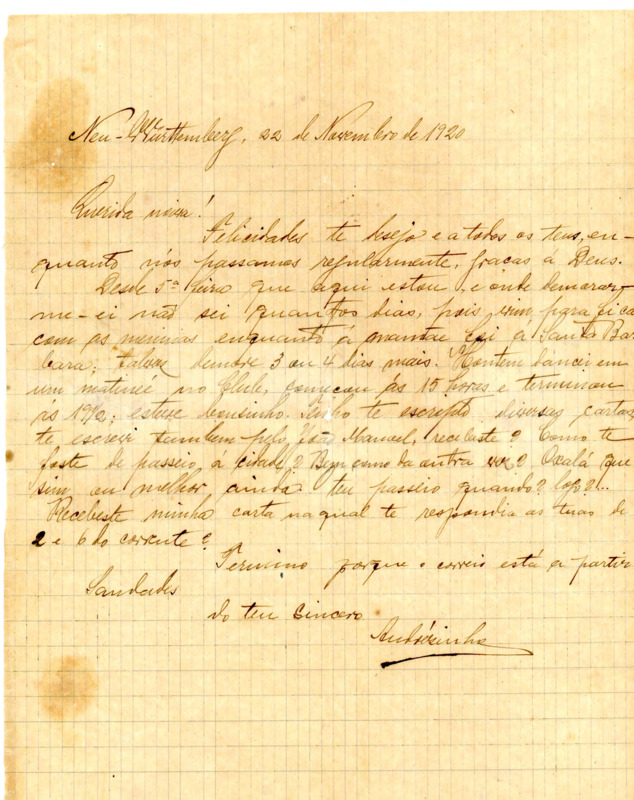 Neu-Württemberg, 22 de Novembro de 1920
Querida noiva!
Felicidades te desejo e a todos os teus, en-
quanto nós passamos regularmente, graças a Deus.
Desde 5ª feira que aqui estou e onde demorar-
me-ei não sei quantos dias, pois vim para fica
com as meninas enquanto á mamãe foi a Santa Bar
bara; talvez demore 3 ou 4 dias mais. Hontem dancei em
um matineé no Club, começou ás 15 horas e terminou
ás 19½; esteve bomsinho. Tenho te escripto diversas cartas
te escrevi tambem pelo João Manoel, recebeste? Como te
foste de passeio á cidade? Bem como da outra vez? Oxalá que
sim ou melhor ainda. teu passeio quando?
Recebeste minha carta na qual te respondia as tuas de
2 e 6 do corrente?
Termino porque o correio está a partir
Saudades
do teu sincero